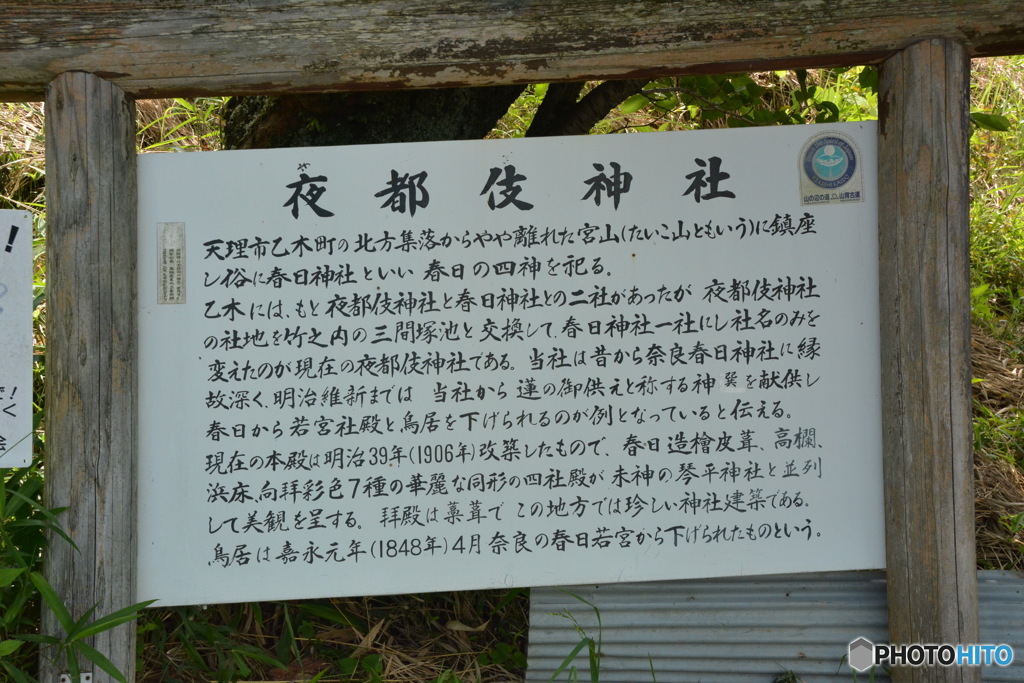 夜都伎神社
天理市乙木町の北方集落からやや離れた宮山(たいこ山ともいう)に鎮座
し俗に春日神社といい 春日の四神を祀る。
乙木には、もと夜都伎神社と春日神社との二社があったが 夜都伎神社
の社地を竹之内の三間塚池と交換して、春日神社一社にし社名のみを
変えたのが現在の夜都伎神社である。当社は昔から奈良春日神社に縁
故深く、明治維新までは 当社から蓮の御供えと称する神饌を献供し
春日から若宮社殿と鳥居を下げられるのが例となっていると伝える。
現在の本殿は明治39年(1906年)改築したもので、春日造檜皮葺、高欄、
浜床、向拝彩色7種の華麗な同形の四社殿が末神の琴平神社と並列
して美観を呈する。拝殿は藁葺で この地方では珍しい神社建築である。
鳥居は嘉永元年(1848年)4月奈良の春日若宮から下げられたものという。
山の辺の道
!
く
会
PHOTOHITO